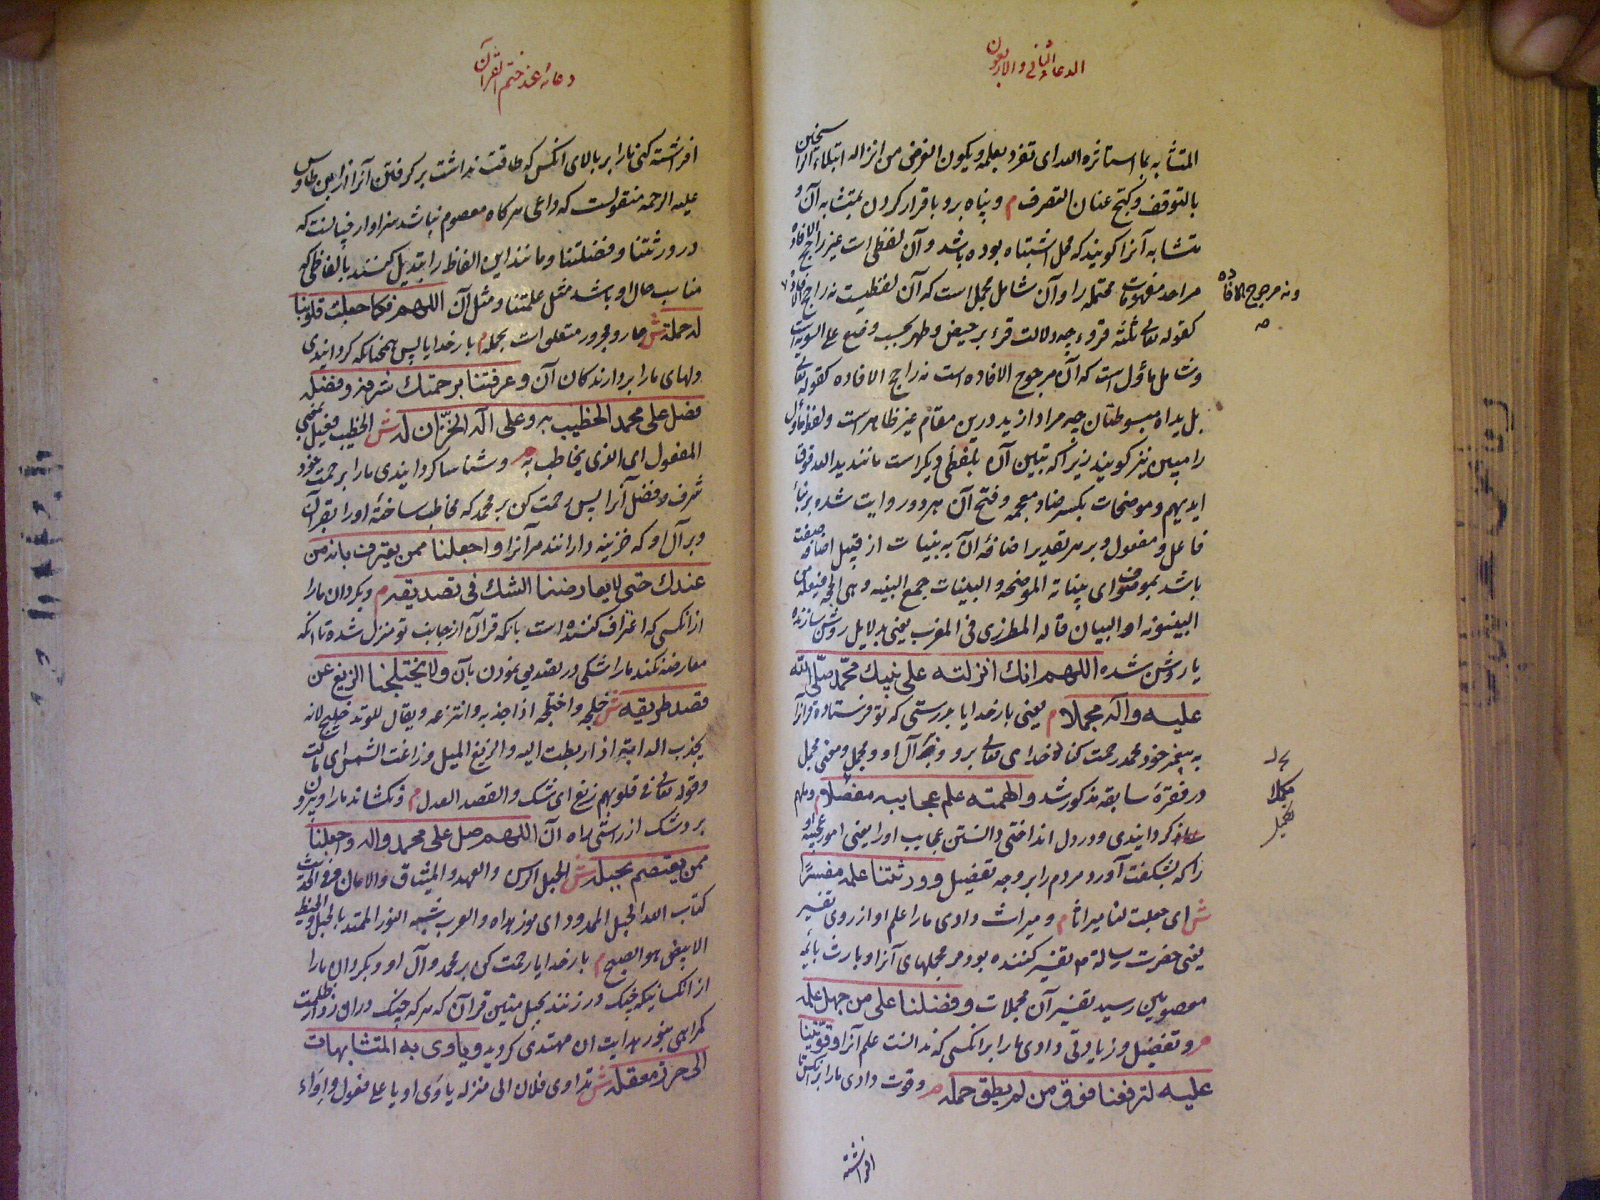 الدعاء الثانی والاربعون
المتشابه بما استاثره الله ای تفرد بعلمه ویکون الغرض من انزاله ابتلاء الراسخین
بالتوقف وکبح عنان التصرف م وپناه برو باقرار کردن بمتشابه آن و
متشابه آنرا گویند که محل اشتباه بوده باشد و آن لفظی است غیر راجح الافاده
مر احد مفهومات محتمله را و آن شامل مجمل است که آن لفظیست نه راجح الافاده
ونه مرجوح الافاده
کقوله تعالی ثلثة قروء چه دلالت قرء بر حیض و طهر بحسب وضع علی السویه است
وشامل مأول است که آن مرجوح الافاده است نه راجح الافاده کقوله تعالی
بل یداه مبسوطتان چه مراد از ید درین مقام غیر ظاهر است ولفظ مأول
را مبین نیز گویند زیرا که تبیین آن بلفظی دیگر است مانند ید الله فوق
ایدیهم وموضحات بکسر ضاد معجمه و فتح آن هر دو روایت شده بر بناء
فاعل ومفعول وبر هر تقدیر اضافۀ آن به بینات از قبیل اضافه صفت
باشد بموصوف ای بیناته الموضحه والبینات جمع البینه وهی الحجه فیعله من
البینونه او البیان قاله المطرزی فی المغرب یعنی بدلایل روشن سازنده
یا روشن شده اللهم انك انزلته علی نبیك محمد صلی الله
علیه واله مجملا م یعنی بار خدایا بدرستی که تو فرستاده قرآنرا
به پیغمبر خود محمد رحمت کناد خدای تعالی برو وبر آل او و مجمل ومعنی مجمل
در فقرۀ سابقه مذکور شد والهمته علم عجایبه مفصلا م وملهم
گردانیدی ودر دل انداختی دانستن عجایب او را یعنی امور عجیبه او
را که بشگفت آورد مردم را بر وجه تفصیل وورثتنا علمه مفسرا
ش ای جعلت لنا میراثا م ومیراث دادی ما را علم او از روی تفسیر
یعنی حضرت رسالة م تفسیر کننده بود مر مجملهای آنرا وبارث بائمه
معصومین رسید تفسیر آن مجملات وفضلتنا علی من جهل علمه
م وتفضیل وزیادتی دادی ما را بر انکسی که ندانست علم آنرا وقویتنا
علیه لترفعنا فوق من لم یطق حمله م وقوت دادی ما را بر انکس تا
افراشته
دعائه عند ختم القرآن
افراشته کنی ما را بر بالای انکس که طاقت نداشت بر گرفتن آنرا از ابن طاوس
علیه الرحمه منقولست که داعی هر گاه معصوم نباشد سزاوار چنانست که
در ورثتنا وفضلتنا ومانند این الفاظ را تبدیل کنند بالفاظی که
مناسب حال او باشد مثل علمتنا ومثل آن اللهم فکما جعلت قلوبنا
له حملة ش جار ومجرور متعلق است بحمله م بار خدایا پس همچنانکه گردانیدی
دلهای ما را بردارندکان آن وعرفتنا برحمتك شرفه وفضله
فصل علی محمد الخطیب به وعلی اله الخزان له ش الخطیب فعیل بمعنی
المفعول ای الذی یخاطب به م وشناسا کردانیدی ما را برحمت خود
شرف وفضل آنرا پس رحمت کن بر محمد که مخاطب ساختۀ او را بقرآن
وبر آل او که خزینه دارانند مر آنرا واجعلنا ممن یعترف بانه من
عندك حتی لا یعارضنا الشك فی تصدیقه م وبگردان ما را
از انکسی که اعتراف کننده است بانکه قرآن از جانب تو منزل شده تا انکه
معارضه نکند ما را شکی در تصدیق نمودن بآن ولا یختلجنا الزیغ عن
قصد طریقه ش خلجه واختلجه اذا جذبه وانتزعه ویقال للوتد خلیج لانه
یجذب الدابة اذا ربطت الیه والزیغ المیل وزاغت الشمس ای مالت
وقوله تعالی فی قلوبهم زیغ ای شک والقصد العدل م ونکشاند ما را وبیرون
برد شک از راستی راه آن اللهم صل علی محمد واله واجعلنا
ممن یعتصم بحبله ش الحبل الرسن والعهد والمیثاق والامان وفی الحدیث
کتاب الله الحبل الممدود ای نور هداه والعرب تشبه النور الممتد بالحبل والخیط
الابیض هو الصبح م بار خدایا رحمت کن بر محمد وآل او وبگردان ما را
از انکسانیکه چنک در زنند بحبل متین قرآن که هر که چنک در او زد از ظلمت
کمراهی بنور هدایت ان مهتدی کردید ویاوی به المتشابهات
الی حرز معقله ش تداوی فلان الی منزله یاوی اویا علی فعول وإواء